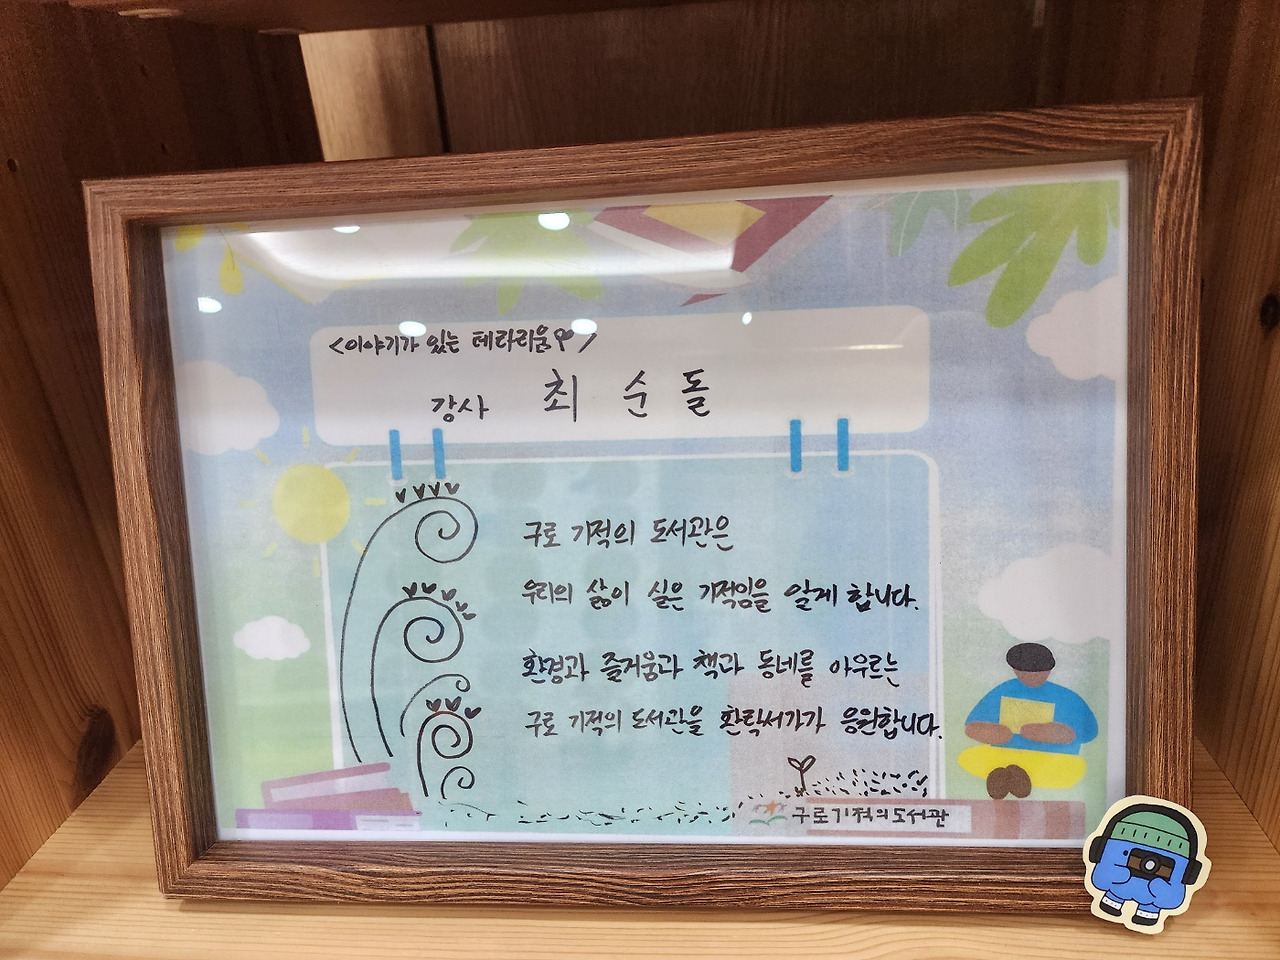 <이야기가 있는 테라리움>
강사 최순돌
구로 기적의 도서관은
우리의 삶이 실은 기적임을 알게 합니다.
환경과 즐거움과 책과 동네를 아우르는
구로 기적의 도서관을 환탁서가가 응원합니다.
구로기적의도서관